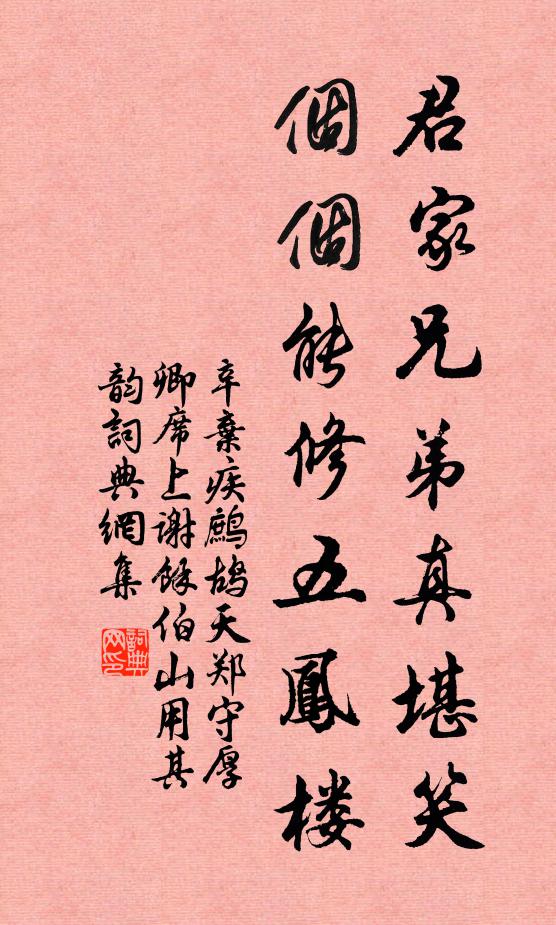 君家兄弟真堪笑
個個能修五鳳楼
辛棄疾鷓鴣天郑守厚
卿席上謝餘伯山用其
韵詞典網集
詞典网印